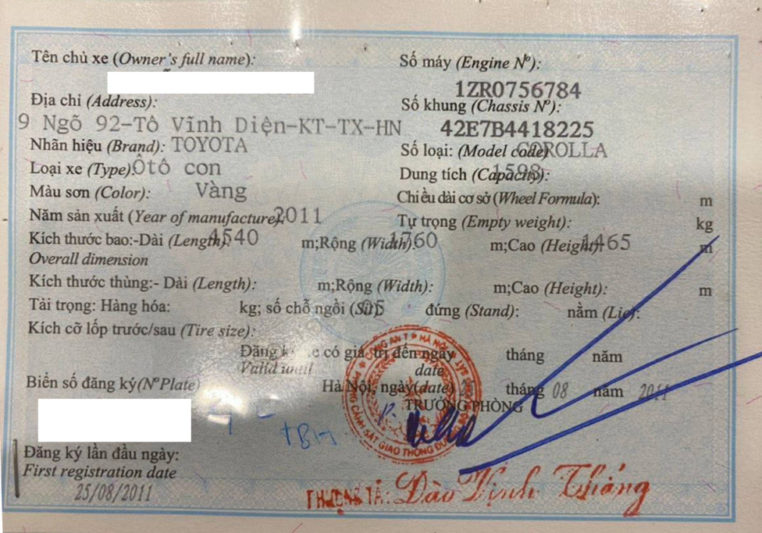 Tên chủ xe (Owner's full name):
Số máy (Engine Nº):
1ZR0756784
Địa chỉ (Address):
Số khung (Chassis Nº):
9 Ngõ 92-Tô Vĩnh Diện-KT-TX-HN
42E7B4418225
Nhãn hiệu (Brand): TOYOTA
Số loại: (Model code) COROLLA
Loại xe (Type): Ôtô con
Dung tích (Capacity): 1598
Màu sơn (Color): Vàng
Chiều dài cơ sở (Wheel Formula): m
Năm sản xuất (Year of manufacture) 2011
Tự trọng (Empty weight): kg
Kích thước bao:-Dài (Length) 4540 m;Rộng (Width) 1760 m;Cao (Height) 1465 m
Overall dimension
Kích thước thùng:- Dài (Length): m;Rộng (Width): m;Cao (Height): m
Tải trọng: Hàng hóa: kg; số chỗ ngồi (Sit) 05 đứng (Stand): nằm (Lie):
Kích cỡ lốp trước/sau (Tire size):
Đăng ký xe có giá trị đến ngày tháng năm
Valid until date
Biển số đăng ký(Nº Plate)
Hà Nội, ngày(date) tháng 08 năm 2011
TRƯỞNG PHÒNG
Đăng ký lần đầu ngày:
First registration date
25/08/2011
THƯỢNG TÁ: Đào Vịnh Thắng